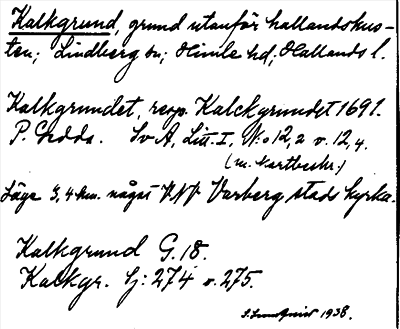 Kalkgrund, grund utanför hallandskus-
ten; Lindberg sn; Himle hd; Hallands l.
Kalkgrundet, resp. Kalckgrundet 1691.
P. Gedda. Sv A, Litt. I, No 12,2 o. 12,4.
(m. kartbeskr.)
Läge 3,4 km. något VNV Varberg stads kyrka.
Kalkgrund G. 18.
Kalkgr. Sj: 274 o. 275.
1938.